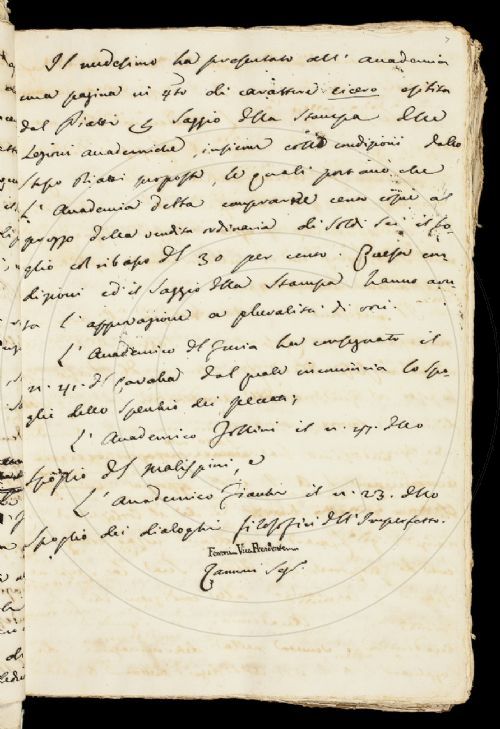 Il medesimo ha presentato all' Accademia
una pagina in 4to di carattere cicero esibita
dal Piatti p Saggio della Stampa delle
Lezioni Accademiche, insieme colle condizioni dallo
stesso Piatti proposte, le quali portano che
l' Accademia debba comprarne cento copie al
prezzo della vendita ordinaria di soldi sei il fo-
glio col ribasso del 30 per cento. Queste con
dizioni ed il Saggio della Stampa hanno avu-
ta l' approvazione a pluralità di voti.
L' Accademico del Furia ha consegnato il
n. 41. del Cavalca dal quale incomincia lo spo-
glio dello Specchio dei peccati;
L' Accademico Follini il n. 47. dello
spoglio del Malispini, e
L' Accademico il n. 23. dello
Spoglio dei dialoghi filosofici dell' Imperfetto.
Ferroni Vice Presidente
Zannoni Seg.